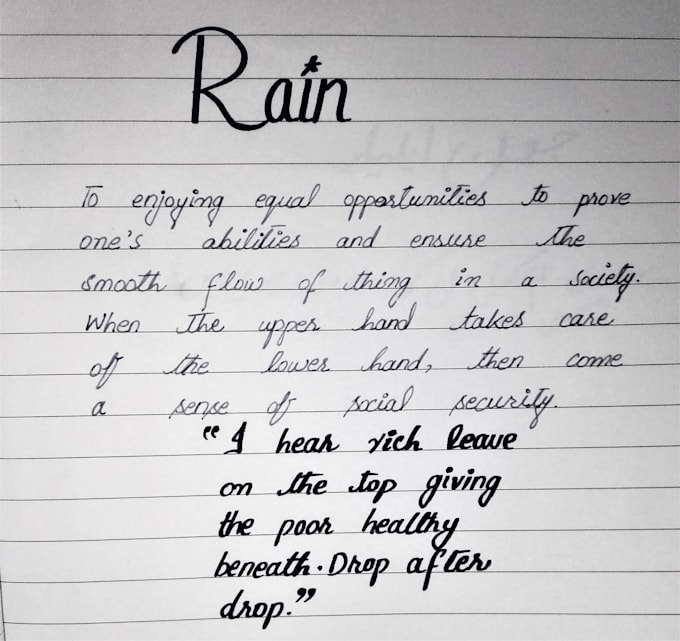 Rain
To enjoying equal opportunities to prove
one's abilities and ensure the
smooth flow of thing in a society.
When the upper hand takes care
of the lower hand, then come
a sense of social security.
"I hear rich leave
on the top giving
the poor healthy
beneath. Drop after
drop."